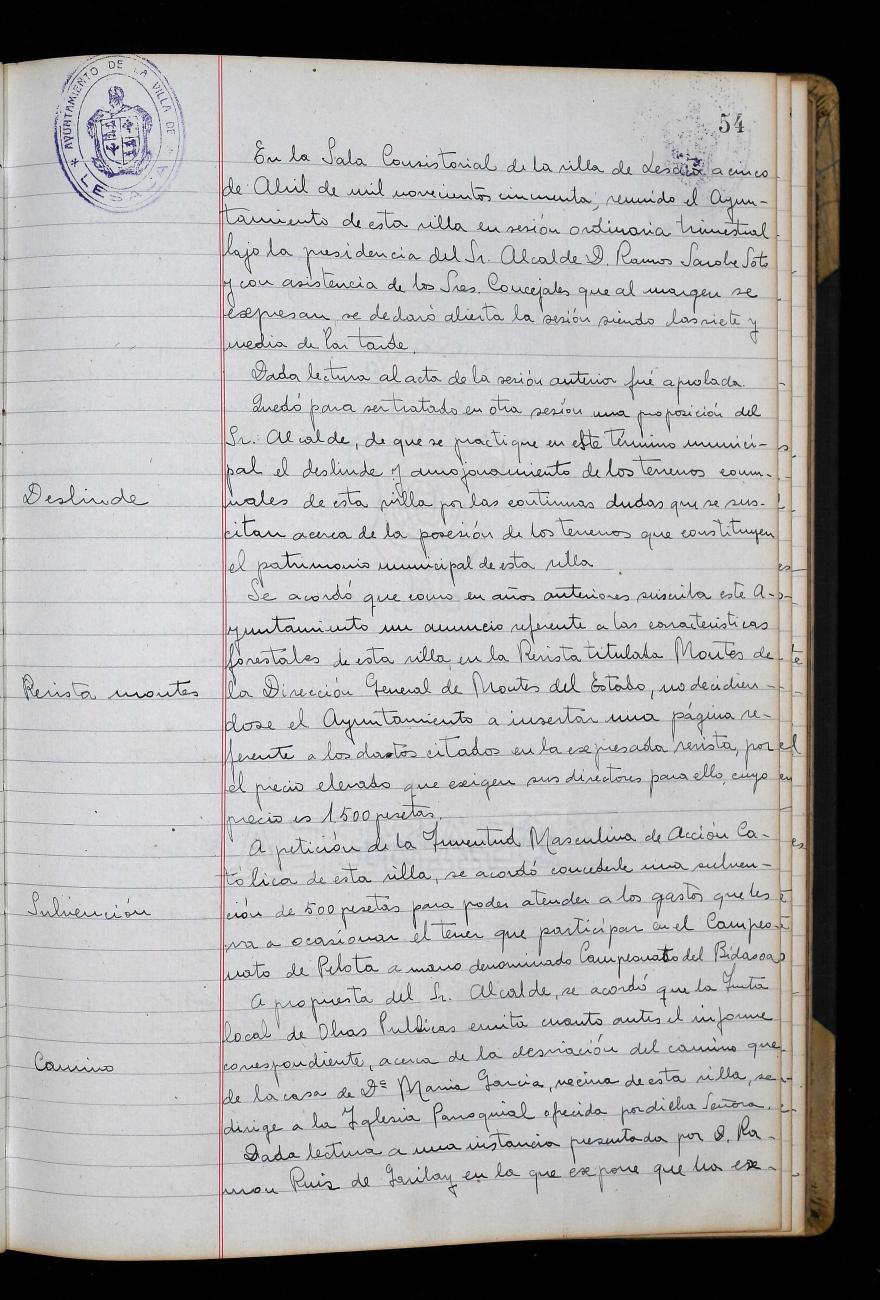 AYUNTAMIENTO DE LA VILLA DE
LESACA
54
En la Sala Consistorial de la villa de Lesaca a cinco
de Abril de mil novecientos cincuenta, reunido el Ayun-
tamiento de esta villa en sesión ordinaria trimestral
bajo la presidencia del Sr. Alcalde D. Ramos Sarobe Soto
y con asistencia de los Sres. Concejales que al margen se
expresan se declaró abierta la sesión siendo las siete y
media de la tarde.
Dada lectura al acta de la sesión anterior fué aprobada.
Quedó para ser tratado en otra sesión una proposición del
Sr. Alcalde, de que se practique en este término munici-
pal el deslinde y amojonamiento de los terrenos comu-
Deslinde
nales de esta villa por las continuas dudas que se sus-
citan acerca de la posesión de los terrenos que constituyen
el patrimonio municipal de esta villa
Se acordó que como en años anteriores suscriba este A-
yuntamiento un anuncio referente a las caracteristicas
forestales de esta villa en la Revista titulada Montes de
Revista montes
la Dirección General de Montes del Estado, no decidien-
dose el Ayuntamiento a insertar una página re-
ferente a los dactos citados en la expresada revista, por
el precio elevado que exigen sus directores para ello, cuyo
precio es 1500 pesetas.
A petición de la Juventud Masculina de Acción Ca-
tólica de esta villa, se acordó concederle una subven-
Subvención
ción de 500 pesetas para poder atender a los gastos que les
va a ocasionar el tener que participar en el Campeo-
nato de Pelota a mano denominado Campeonato del Bidasoa
A propuesta del Sr. Alcalde, se acordó que la Junta
local de Obras Publicas emita cuanto antes el informe
Camino
correspondiente, acerca de la desviación del camino que
de la casa de Dª Maria Garcia, vecina de esta villa, se
dirige a la Iglesia Parroquial ofrecida por dicha Señora.
Dada lectura a una instancia presentada por D. Ra-
mon Ruiz de en la que expone que ha ex-